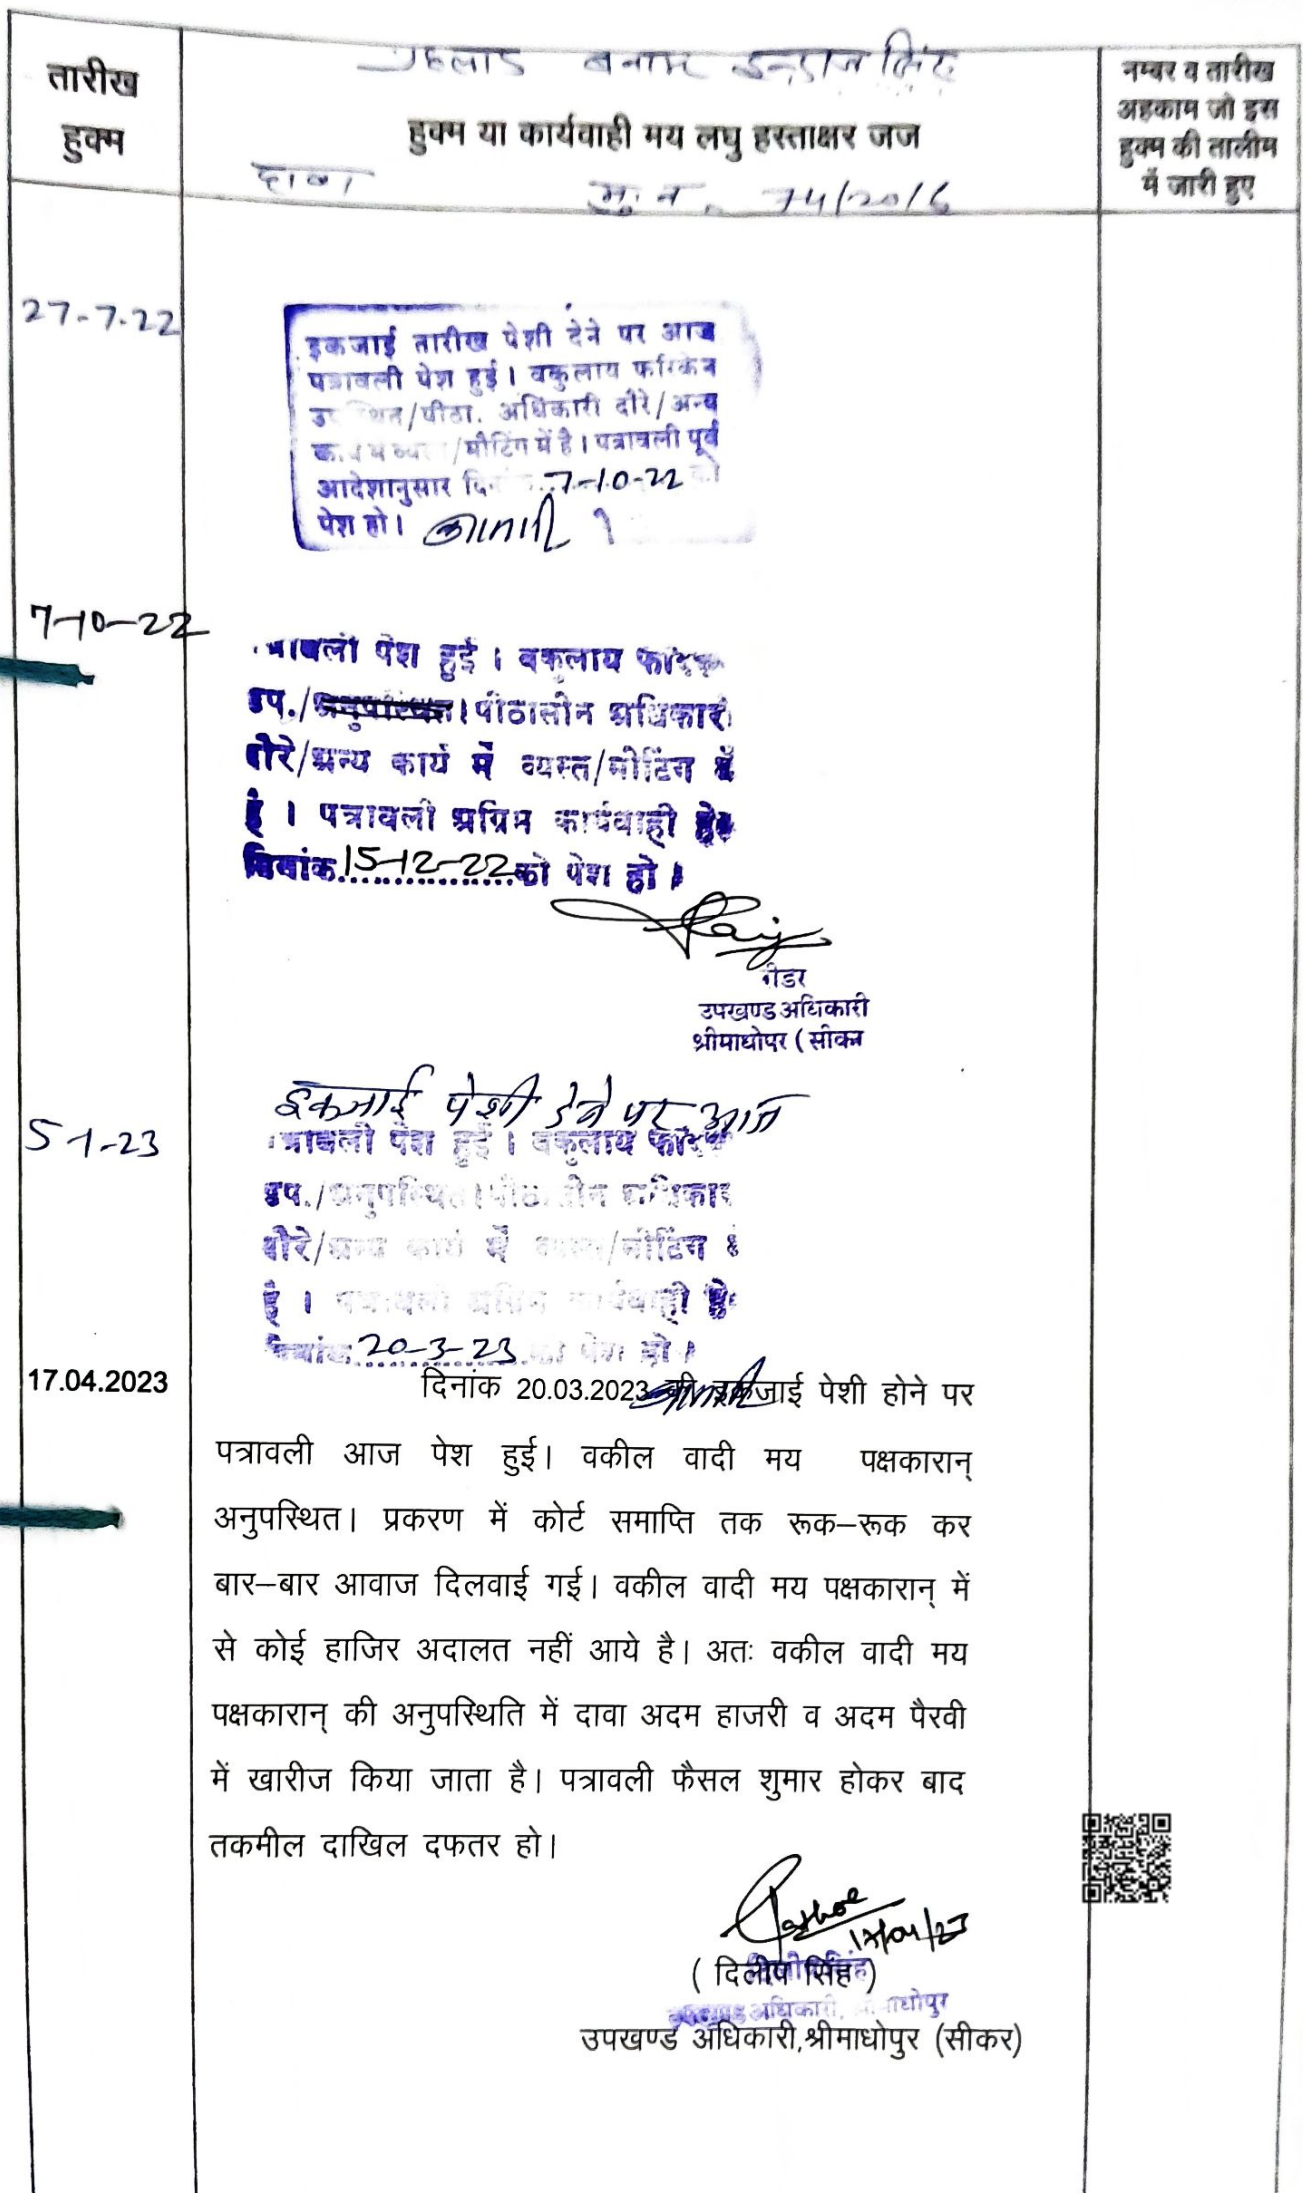 तारीख
हुक्म
बनाम
हुक्म या कार्यवाही मय लघु हस्ताक्षर जज
दावा मु. न. 74/2016
नम्बर व तारीख
अहकाम जो इस
हुक्म की तालीम
में जारी हुए
27-7-22
इकजाई तारीख पेशी देने पर आज
पत्रावली पेश हुई। वकुलाय फरिकेन
/पीठा. अधिकारी दौरे/अन्य
/मीटिंग में है। पत्रावली पूर्व
आदेशानुसार 7-10-22 को
पेश हो।
7-10-22
पेश हुई । वकुलाय
उप./अनुपस्थित।पीठासीन अधिकारी
दौरे/अन्य कार्य में व्यस्त/मीटिंग में
है । पत्रावली अग्रिम कार्यवाही हेतु
दिनांक 15-12-22 को पेश हो ।
रीडर
उपखण्ड अधिकारी
श्रीमाधोपुर (सीकर
5-1-23
इकजाई पेशी देने पर आज
पेश हुई । वकुलाय
उप./अनुपस्थित।
दौरे/अन्य कार्य में /मीटिंग
है । पत्रावली अग्रिम कार्यवाही
दिनांक 20-3-23 को पेश हो ।
17.04.2023
दिनांक 20.03.2023 की इकजाई पेशी होने पर
पत्रावली आज पेश हुई। वकील वादी मय पक्षकारान्
अनुपस्थित। प्रकरण में कोर्ट समाप्ति तक रूक–रूक कर
बार–बार आवाज दिलवाई गई। वकील वादी मय पक्षकारान् में
से कोई हाजिर अदालत नहीं आये है। अतः वकील वादी मय
पक्षकारान् की अनुपस्थिति में दावा अदम हाजरी व अदम पैरवी
में खारीज किया जाता है। पत्रावली फैसल शुमार होकर बाद
तकमील दाखिल दफतर हो।
17/04/23
( दिलीप सिंह )
अधिकारी,
उपखण्ड अधिकारी,श्रीमाधोपुर (सीकर)